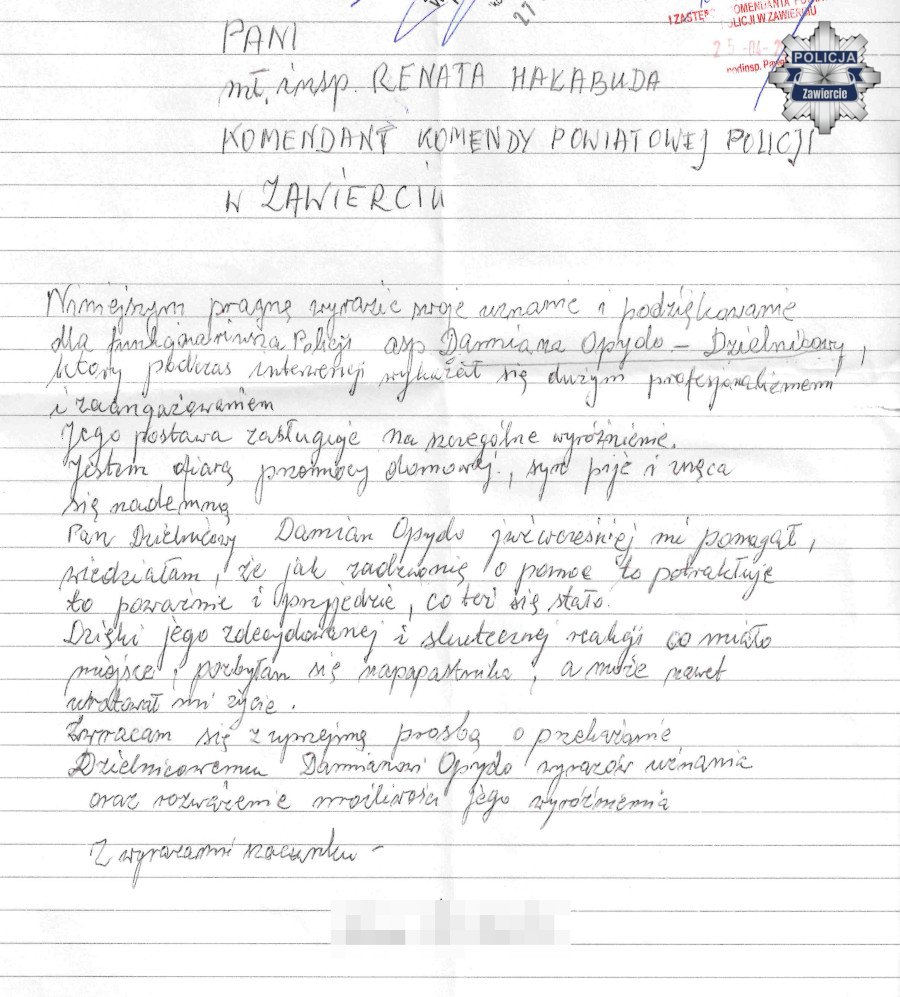 27
I ZASTĘP KOMENDANTA POW
POLICJI W ZAWIERCIU
25 -04- 2
podinsp. Paweł
POLICJA
Zawiercie
PANI
mł. insp. RENATA HAKABUDA
KOMENDANT KOMENDY POWIATOWEJ POLICJI
W ZAWIERCIU
Niniejszym pragnę wyrazić swoje uznanie i podziękowanie
dla funkcjonariusza Policji asp Damiana Opydo – Dzielnicowy,
który podczas interwencji wykazał się dużym profesjonalizmem
i zaangażowaniem
Jego postawa zasługuje na szczególne wyróżnienie.
Jestem ofiarą przemocy domowej., syn pije i znęca
się nademną
Pan Dzielnicowy Damian Opydo już wcześniej mi pomagał,
wiedziałam, że jak zadzwonię o pomoc to potraktuje
to poważnie i przyjedzie, co też się stało.
Dzięki jego zdecydowanej i skutecznej reakcji co miało
miejsce, pozbyłam się napapastnika, a może nawet
uratował mi życie.
Zwracam się z uprzejmą prośbą o przekazanie
Dzielnicowemu Damianowi Opydo wyrazów uznania
oraz rozważenie możliwości jego wyróżnienia
Z wyrazami szacunku –